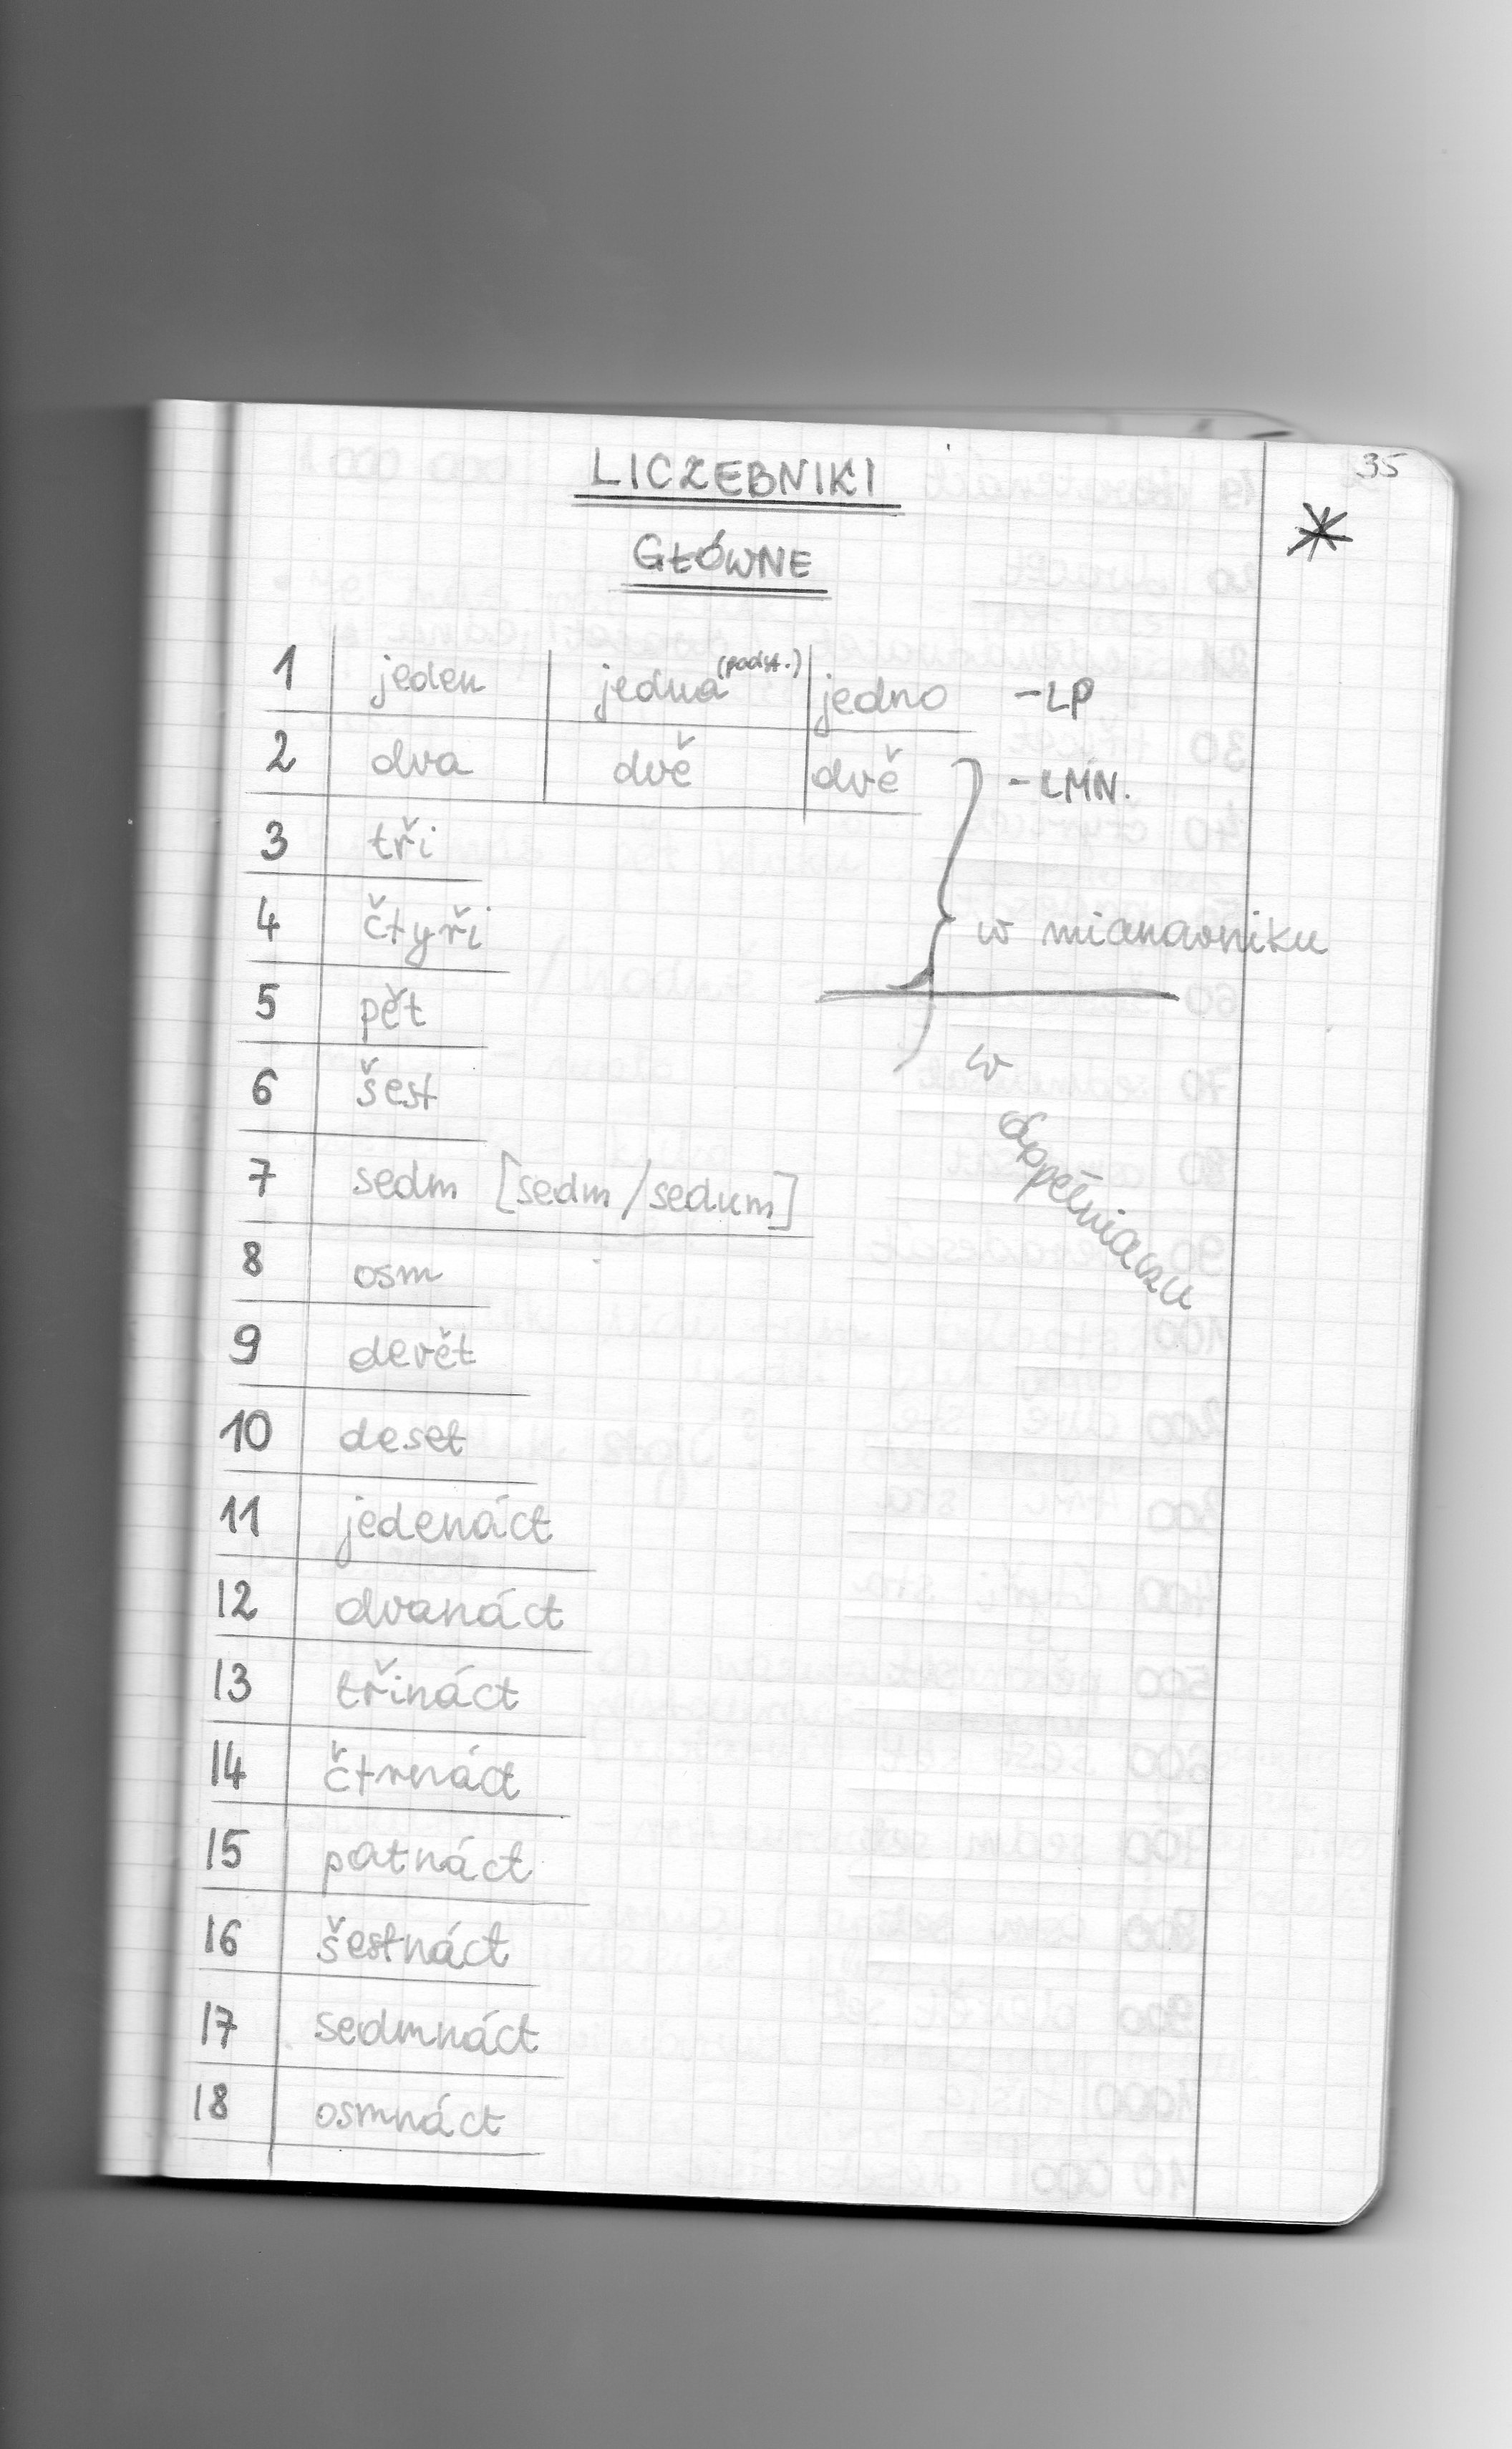 35
LICZEBNIKI
GŁÓWNE
1 jeden jedna (podst.) jedno - LP
2 dva dvě dvě - LMN.
3 tři
4 čtyři w mianowniku
5 pět
6 šest w dopełniaczu
7 sedm [sedm/sedum]
8 osm
9 devět
10 deset
11 jedenáct
12 dvanáct
13 třináct
14 čtrnáct
15 patnáct
16 šestnáct
17 sedmnáct
18 osmnáct